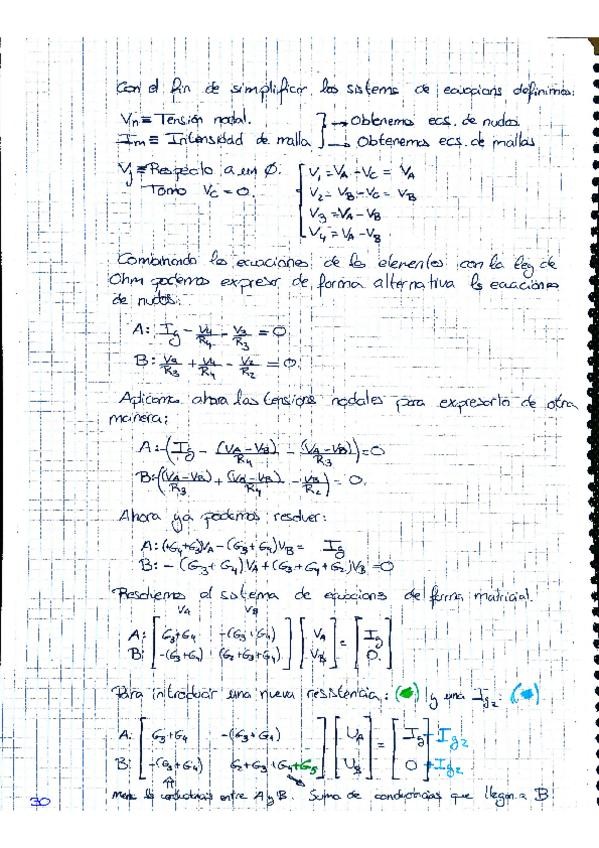 Con el fin de simplificar los sistema de ecuacions definimos:
Vn ≡ Tensión nodal. → Obtenemos ecs. de nudos
Im ≡ Intensidad de malla → Obtenemos ecs. de mallas
Vj ≡ Respecto a un 0. V1 = VA - VC = VA
Tomo VC = 0. V2 = VB - VC = VB
V3 = VA - VB
V4 = VA - VB
Combinando las ecuaciones de los elementos con la ley de
Ohm podemos expresar de forma alternativa ls ecuaciones
de nudos:
A: Ig - V4/R4 - V3/R3 = 0
B: V3/R3 + V4/R4 - V2/R2 = 0.
Aplicamos ahora las tensions nodales para expresarlo de otra
manera:
A: -(Ig - (VA-VB)/R4 - (VA-VB)/R3) = 0
B: -((VA-VB)/R3 + (VA-VB)/R4 - VB/R2) = 0.
Ahora ya podemos resolver:
A: (+G4+G3)VA - (G3+G4)VB = Ig
B: - (G3+G4)VA + (G3+G4+G2)VB = 0
Resolvemos el sistema de ecuacions de forma matricial.
VA VB
A: [G3+G4 -(G3+G4)] [VA] = [Ig]
B: [-(G3+G4) (G2+G3+G4)] [VB] [0]
Para introducir una nueva resistencia: (*) y una Ig2: (*)
A: [G3+G4 -(G3+G4)] [UA] = [Ig] - Ig2
B: [-(G3+G4) G2+G3+G4+G5] [UB] [0] + Ig2
menos las conductancias entre A y B. Suma de conductancias que llegan a B
30